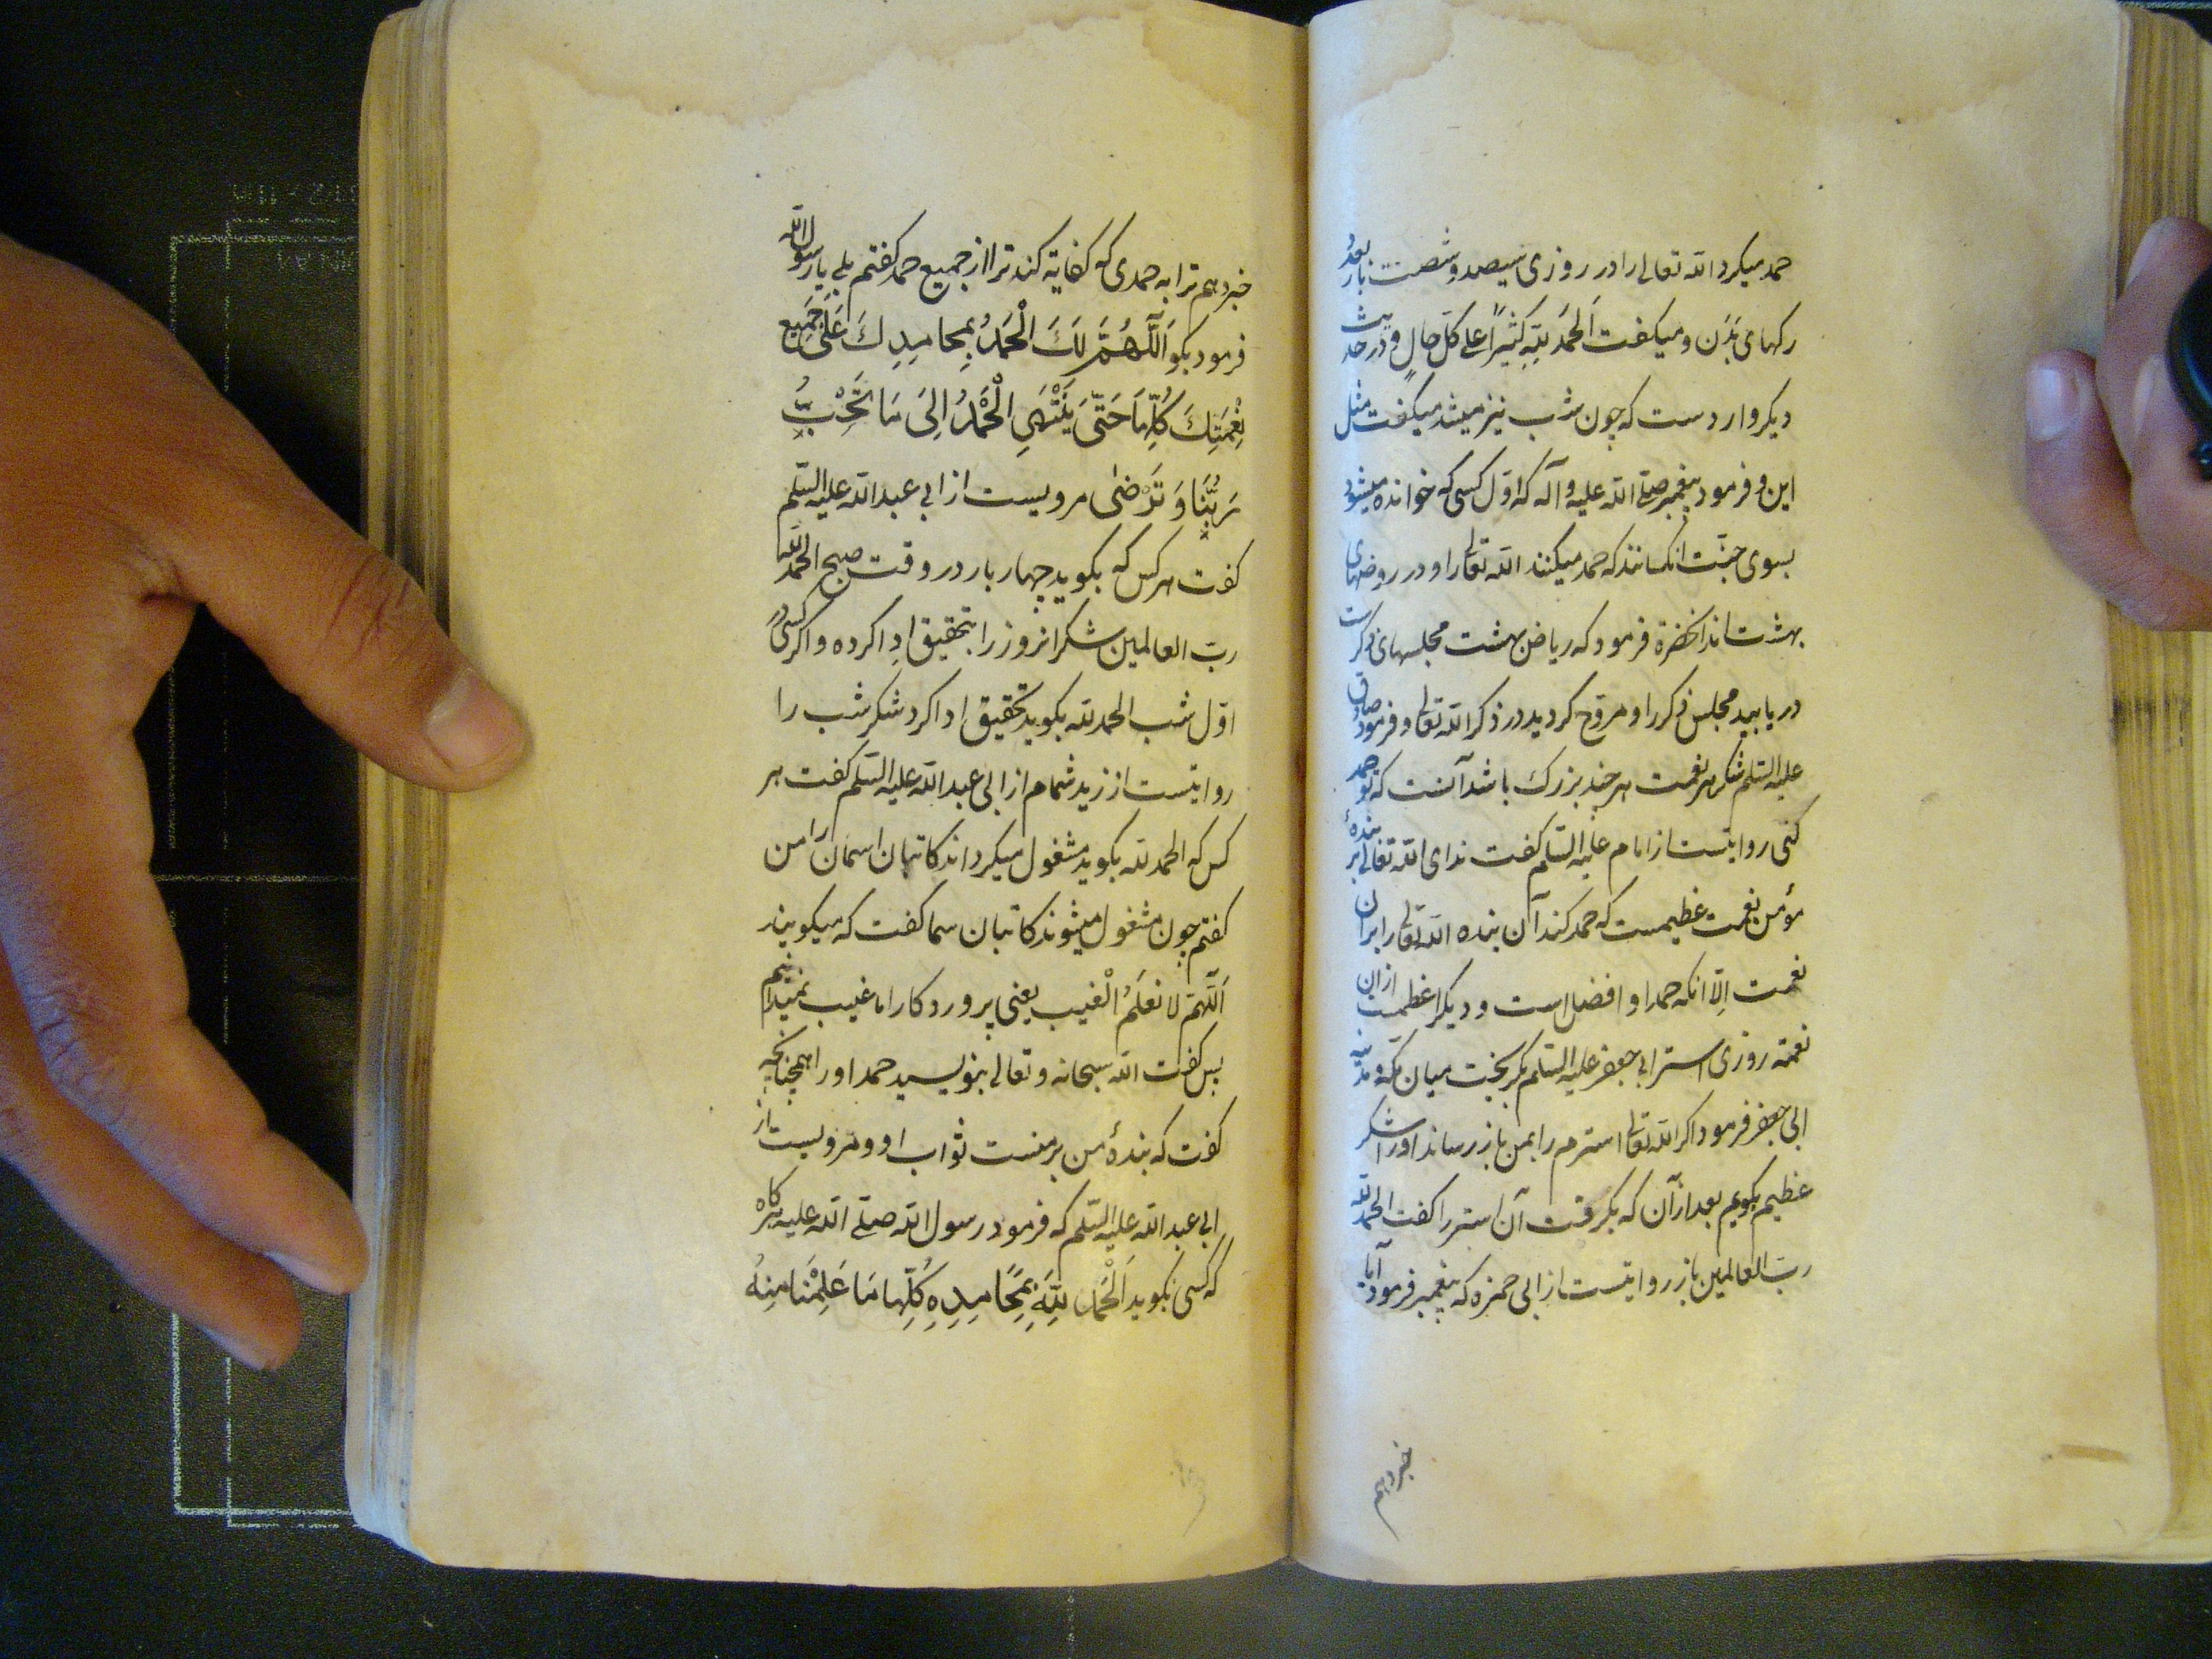 حمد میکرد الله تعالی را در روزی سیصد و شصت بار بعدد
رکهای بدن و میکفت اَلحَمدُ لِلّهِ کَثیراً علی کلّ حالٍ و در حدیث
دیکر وارد ست که چون شب نیز میشد میکفت مثل
این و فرمود پیغمبر صلّی الله علیه و آله که اوّل کسی که خوانده میشود
بسوی جنّت انکسانند که حمد میکنند الله تعالی را و در روضهای
بهشت اند انحضرة فرمود که ریاض بهشت مجلسهای ذکر ست
در یابید مجلس ذکر را و مروّح کردید در ذکر الله تعالی و فرمود صادق
علیه السّلم شکر هر نعمت هر چند بزرک باشد آنست که تو حمد
کنی روایتست از امام علیه السّلم کفت ندای الله تعالی بر بندهٔ
مؤمن نعمت عظیمست که حمد کند آن بنده الله تعالی را بر ان
نعمت اِلّا انکه حمد او افضل است و دیکر اعظمست از ان
نعمته روزی استر ابی جعفر علیه السّلم بکریخت میان مکّه و مدینه
ابی جعفر فرمود اکر الله تعالی استرم را بمن باز رساند او را شکر
عظیم بکویم بعد از آن که بکرفت آن استر را کفت الحمد لله
ربّ العالمین باز روایتست از ابی حمزه که پیغمبر فرمود آیا
خبر دهم
خبر دهم ترا به حمدی که کفایة کند ترا از جمیع حمد کفتم بلی یا رسول الله
فرمود بکو اَللّهُمَّ لَکَ الْحَمدُ بِمحامِدِکَ عَلی جَمیع
نِعْمَتِکَ کُلِّها حَتّی یَنْتَهِیَ الْحَمْدُ اِلیَ مَا تُحِبُّ
رَبُّنَا وَ تَرْضی مرویست از ابی عبد الله علیه السّلم
کفت هر کس که بکوید چهار بار در وقت صبح الحمد لله
ربّ العالمین شکر انروز را بتحقیق ادا کرده و اکر کسی در
اوّل شب الحمد لله بکوید تحقیق ادا کرد شکر شب را
روایتست از زید شمام از ابی عبد الله علیه السّلم کفت هر
کس که الحمد لله بکوید مشغول میکرداند کاتبان اسمان را من
کفتم چون مشغول میشوند کاتبان سما کفت که میکویند
اَللّهمّ لا نعلَمُ الْغیب یعنی پروردکارا ما غیب نمیدانیم
پس کفت الله سبحانه و تعالی بنویسید حمد او را همچنانچه
کفت که بندهٔ من بر منست ثواب او و مرویست از
ابی عبد الله علیه السّلم که فرمود رسول الله صلّی الله علیه هرکاه
که کسی بکوید اَلْحَمْدُ لِلّهِ بِمَحامِدِهِ کُلِّها مَا عَلِمْنَا مِنهُ